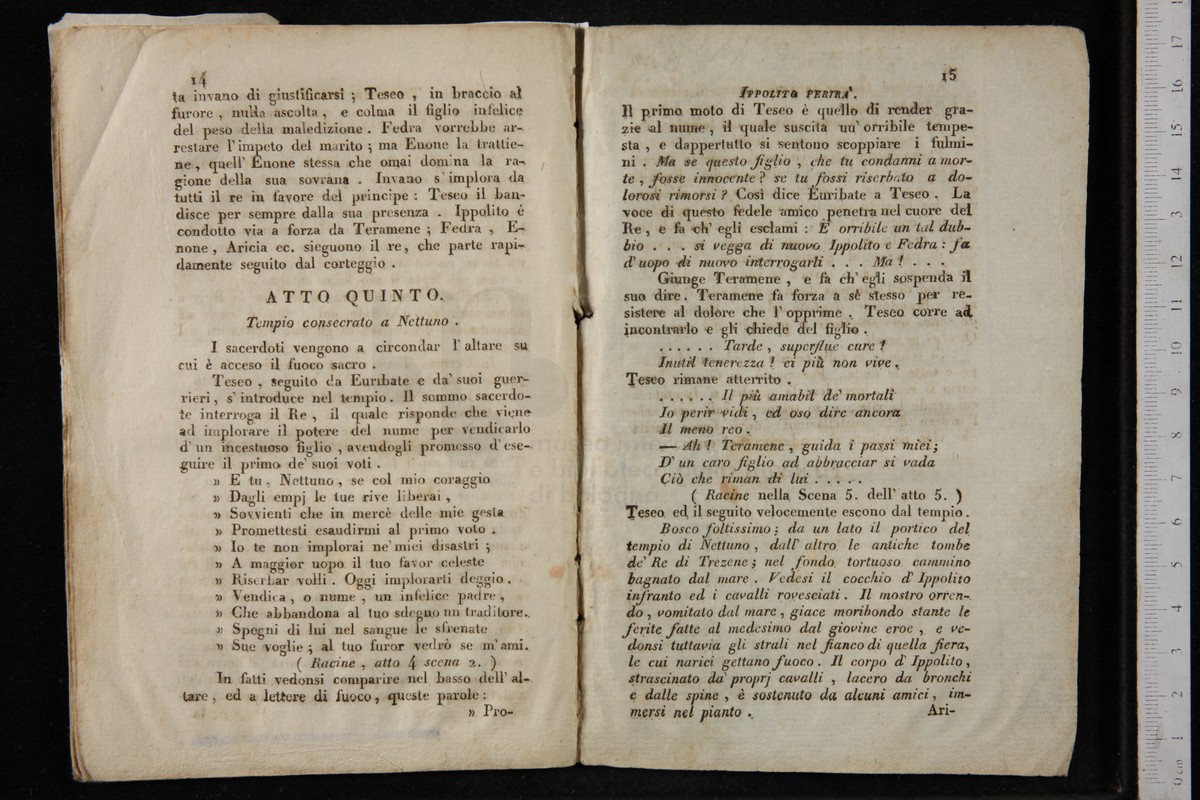 14
ta invano di giustificarsi ; Teseo , in braccio al
furore , nulla ascolta , e colma il figlio infelice
del peso della maledizione . Fedra vorrebbe ar-
restare l'impeto del marito ; ma Enone la trattie-
ne , quell' Enone stessa che omai domina la ra-
gione della sua sovrana . Invano s' implora da
tutti il re in favore del principe : Teseo il ban-
disce per sempre dalla sua presenza . Ippolito è
condotto via a forza da Teramene ; Fedra , E-
none , Aricia ec. sieguono il re , che parte rapi-
damente seguito dal corteggio .
ATTO QUINTO.
Tempio consecrato a Nettuno .
I sacerdoti vengono a circondar l' altare su
cui è acceso il fuoco sacro .
Teseo , seguito da Euribate e da' suoi guer-
rieri , s' introduce nel tempio . Il sommo sacerdo-
te interroga il Re , il quale risponde che viene
ad implorare il potere del nume per vendicarlo
d' un incestuoso figlio , avendogli promesso d' ese-
guire il primo de' suoi voti .
» E tu , Nettuno , se col mio coraggio
» Dagli empj le tue rive liberai ,
» Sovvienti che in mercè delle mie gesta
» Promettesti esaudirmi al primo voto .
» Io te non implorai ne' miei disastri ;
» A maggior uopo il tuo favor celeste
» Riserbar volli . Oggi implorarti deggio .
» Vendica , o nume , un infelice padre ,
» Che abbandona al tuo sdegno un traditore .
» Spegni di lui nel sangue le sfrenate
» Sue voglie ; al tuo furor vedrò se m' ami.
( Racine , atto 4 scena 2. )
In fatti vedonsi comparire nel basso dell' al-
tare , ed a lettere di fuoco , queste parole :
» Pro-
15
IPPOLITO PERIRA'.
Il primo moto di Teseo è quello di render gra-
zie al nume , il quale suscita un' orribile tempe-
sta , e dappertutto si sentono scoppiare i fulmi-
ni . Ma se questo figlio , che tu condanni a mor-
te , fosse innocente ? se tu fossi riserbato a do-
lorosi rimorsi ? Così dice Euribate a Teseo . La
voce di questo fedele amico penetra nel cuore del
Re , e fa ch' egli esclami : E' orribile un tal dub-
bio . . . si vegga di nuovo Ippolito e Fedra : fa
d' uopo di nuovo interrogarli . . . Ma ! . . .
Giunge Teramene , e fa ch' egli sospenda il
suo dire . Teramene fa forza a sè stesso per re-
sistere al dolore che l' opprime . Teseo corre ad
incontrarlo e gli chiede del figlio .
. . . . . . Tarde , superflue cure !
Inutil tenerezza ! ei più non vive .
Teseo rimane atterrito .
. . . . . . Il più amabil de' mortali
Io perir vidi , ed oso dire ancora
Il meno reo .
— Ah ! Teramene , guida i passi miei ;
D' un caro figlio ad abbracciar si vada
Ciò che riman di lui . . . . .
( Racine nella Scena 5. dell' atto 5. )
Teseo ed il seguito velocemente escono dal tempio .
Bosco foltissimo ; da un lato il portico del
tempio di Nettuno , dall' altro le antiche tombe
de' Re di Trezene ; nel fondo tortuoso cammino
bagnato dal mare . Vedesi il cocchio d' Ippolito
infranto ed i cavalli rovesciati . Il mostro orren-
do , vomitato dal mare , giace moribondo stante le
ferite fatte al medesimo dal giovine eroe , e ve-
donsi tuttavia gli strali nel fianco di quella fiera,
le cui narici gettano fuoco . Il corpo d' Ippolito ,
strascinato da' proprj cavalli , lacero da bronchi
e dalle spine , è sostenuto da alcuni amici , im-
mersi nel pianto .
Ari-